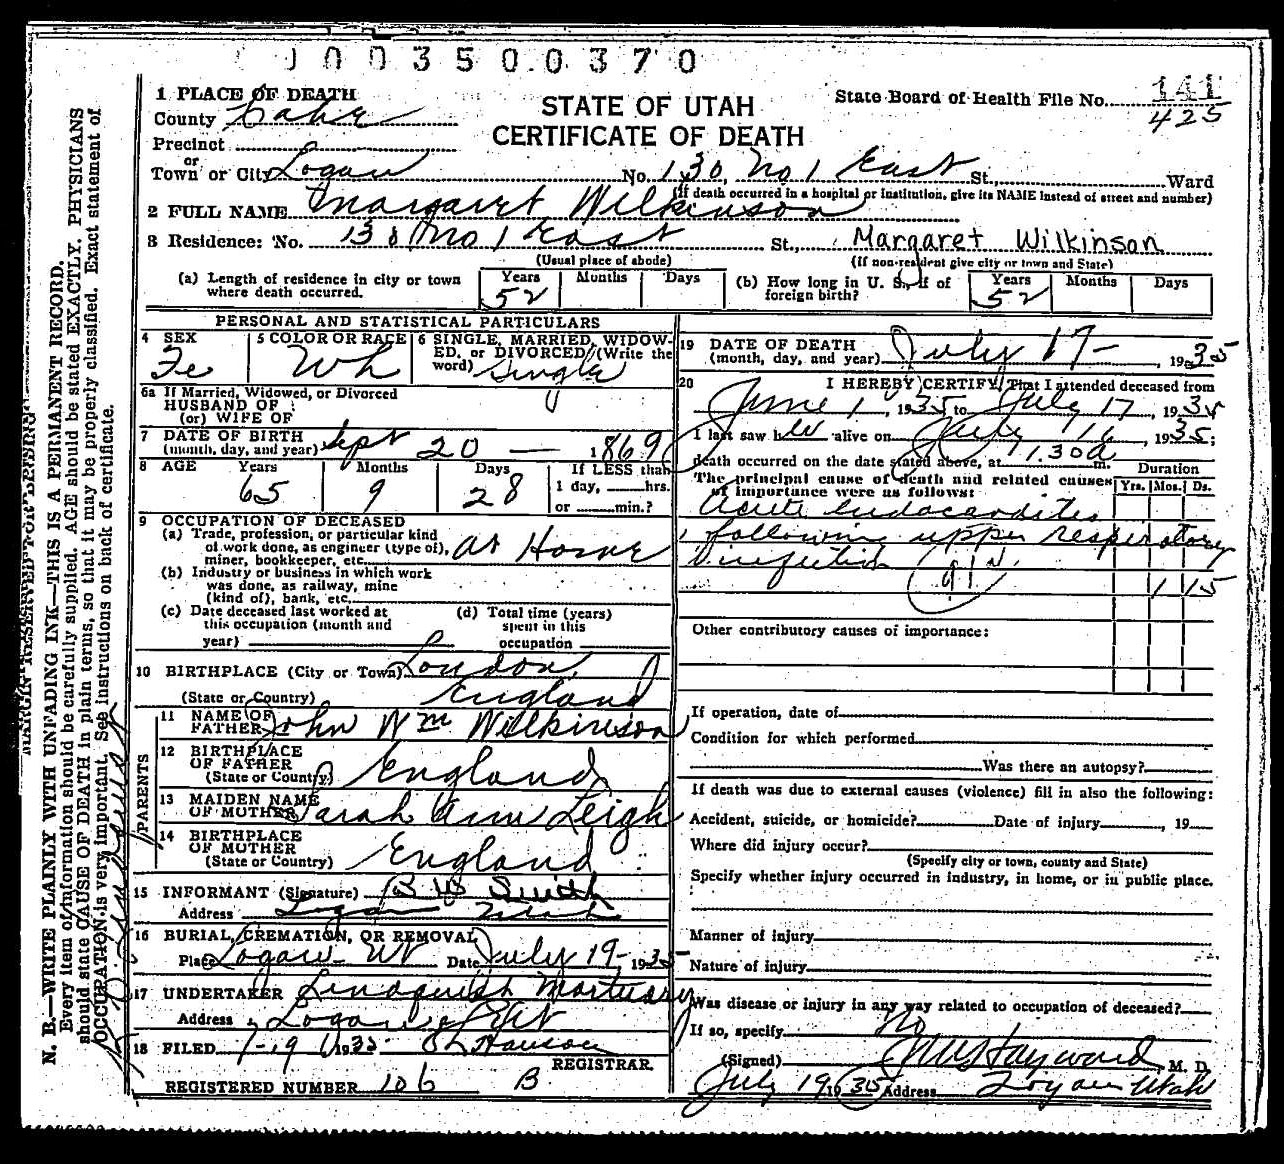 00350.0370
1 PLACE OF DEATH
County Cache
STATE OF UTAH
CERTIFICATE OF DEATH
State Board of Health File No. 141
425
Precinct
or
Town or City Logan No. 130 No 1 East St., Ward
(If death occurred in a hospital or institution, give its NAME instead of street and number)
2 FULL NAME Margaret Wilkinson
3 Residence: No. 130 No 1 East St., Margaret Wilkinson
(Usual place of abode) (If non-resident give city or town and State)
(a) Length of residence in city or town where death occurred. Years 52 Months Days
(b) How long in U. S., if of foreign birth? Years 52 Months Days
PERSONAL AND STATISTICAL PARTICULARS
4 SEX Fe
5 COLOR OR RACE Wh
6 SINGLE, MARRIED, WIDOWED, or DIVORCED (Write the word) Single
6a If Married, Widowed, or Divorced
HUSBAND OF
(or) WIFE OF
7 DATE OF BIRTH
(month, day, and year) Sept 20 — 1869
8 AGE Years 65 Months 9 Days 28
If LESS than
1 day, hrs.
or min.?
9 OCCUPATION OF DECEASED
(a) Trade, profession, or particular kind
of work done, as engineer (type of), At Home
miner, bookkeeper, etc.
(b) Industry or business in which work
was done, as railway, mine
(kind of), bank, etc.
(c) Date deceased last worked at
this occupation (month and
year)
(d) Total time (years)
spent in this
occupation
10 BIRTHPLACE (City or Town) London
(State or Country) England
PARENTS
11 NAME OF
FATHER John Wm Wilkinson
12 BIRTHPLACE
OF FATHER
(State or Country) England
13 MAIDEN NAME
OF MOTHER Sarah Ann Leigh
14 BIRTHPLACE
OF MOTHER
(State or Country) England
15 INFORMANT (Signature) B W Smith
Address Logan Utah
16 BURIAL, CREMATION, OR REMOVAL
Place Logan Ut Date July 19- 1935
17 UNDERTAKER Lindquist Mortuary
Address Logan Ut
18 FILED 7-19 1935 Hanson
REGISTRAR.
REGISTERED NUMBER 106 B
19 DATE OF DEATH
(month, day, and year) July 17- , 1935
20 I HEREBY CERTIFY, That I attended deceased from
June 1, 1935 to July 17, 1935
I last saw her alive on July 16, 1935;
death occurred on the date stated above, at 1.30a m.
The principal cause of death and related causes
of importance were as follows:
Duration
Yrs. Mos. Ds.
Acute Endocarditis
following upper respiratory
infection
91
1 15
Other contributory causes of importance:
If operation, date of
Condition for which performed
Was there an autopsy?
If death was due to external causes (violence) fill in also the following:
Accident, suicide, or homicide? Date of injury , 19
Where did injury occur?
(Specify city or town, county and State)
Specify whether injury occurred in industry, in home, or in public place.
Manner of injury
Nature of injury
Was disease or injury in any way related to occupation of deceased?
If so, specify No
(Signed) Hayward, M. D.
July 19 1935 Address Logan Utah
MARGIN RESERVED FOR BINDING
N. B.—WRITE PLAINLY WITH UNFADING INK—THIS IS A PERMANENT RECORD.
Every item of information should be carefully supplied. AGE should be stated EXACTLY. PHYSICIANS
should state CAUSE OF DEATH in plain terms, so that it may be properly classified. Exact statement of
OCCUPATION is very important. See instructions on back of certificate.